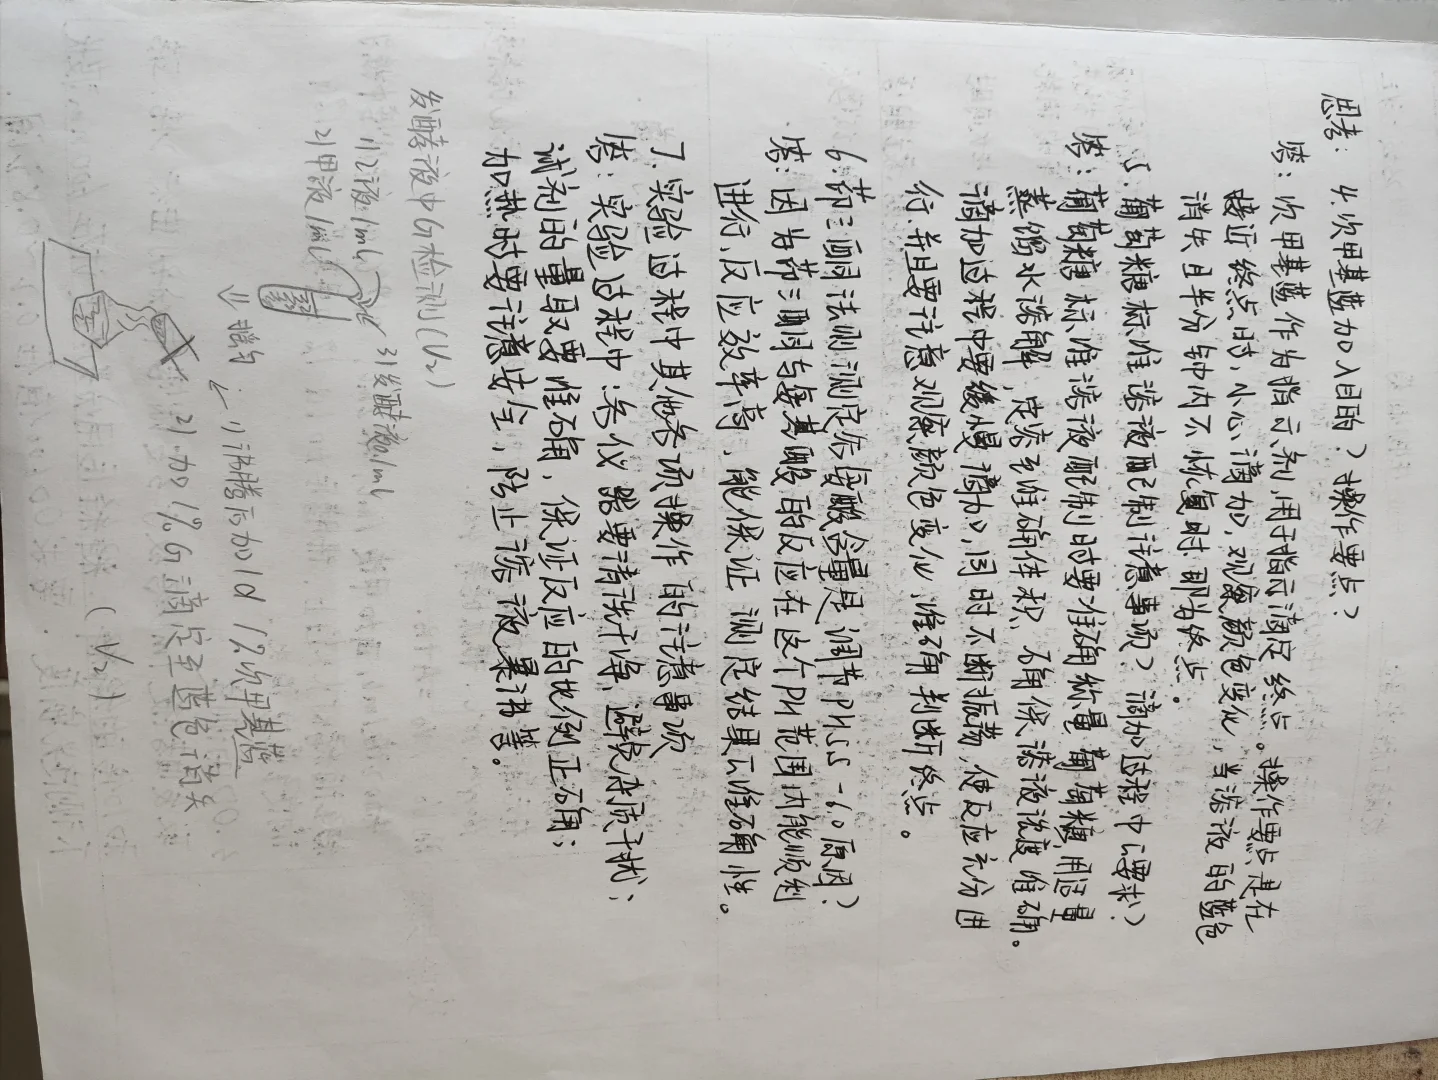 思考: 4.次甲基蓝加入目的?操作要点?
答:次甲基蓝作为指示剂,用于指示滴定终点。操作要点是在
接近终点时,小心滴加,观察颜色变化,当溶液的蓝色
消失且半分钟内不恢复时即为终点。
5.葡萄糖标准溶液配制注意事项?滴加过程中的要求?
答:葡萄糖标准溶液配制时要准确称量葡萄糖,用适量
蒸馏水溶解,定容至准确体积,确保溶液浓度准确。
滴加过程中要缓慢滴加,同时不断振荡,使反应充分进
行,并且要注意观察颜色变化,准确判断终点。
6.茚三酮法测定氨基酸含量是调节PH5.5-6.0原因?
答:因为茚三酮与氨基酸的反应在这个PH范围内能顺利
进行,反应效率高,能保证测定结果的准确性。
7.实验过程中其他各项操作的注意事项
答:实验过程中:各仪器要清洗干净,避免杂质干扰;
试剂的量取要准确,保证反应的比例正确;
加热时要注意安全,防止溶液暴沸等。
发酵液中的检测(V₂)
1)乙液1mL
2)甲液1mL
3)发酵液1mL
⇓ 摇匀
1)沸腾后加1d 1%次甲基蓝
2)加1%的滴定至蓝色消失
(V₂)